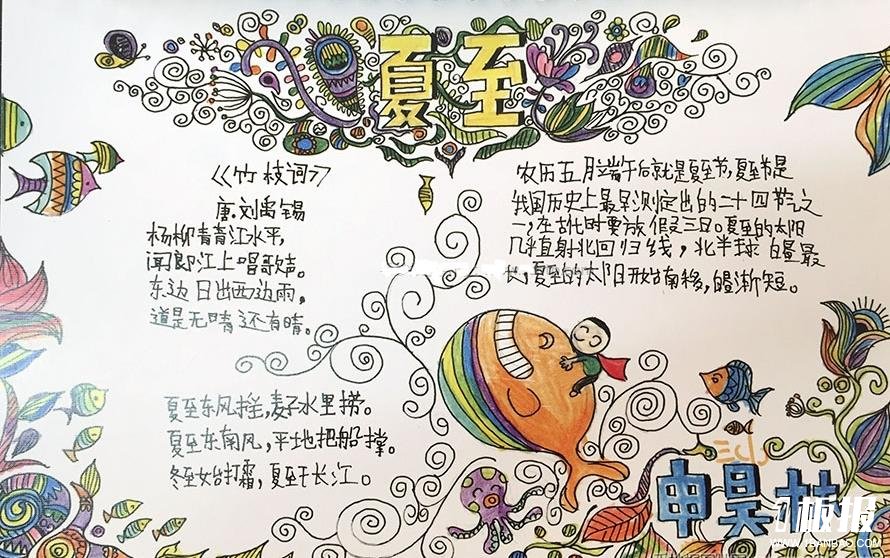 夏至
《竹枝词》
唐.刘禹锡
杨柳青青江水平,
闻郎江上唱歌声。
东边日出西边雨,
道是无晴还有晴。
农历五月端午后就是夏至节,夏至节是
我国历史上最早测定出的二十四节气之
一,在古代时要放假三日。夏至的太阳
几乎直射北回归线,北半球白昼最
长,夏至的太阳开始南移,白昼渐短。
夏至东风摇,麦子水里捞。
夏至东南风,平地把船撑。
冬至始打霜,夏至干长江。
三(1)
申昊林
板报